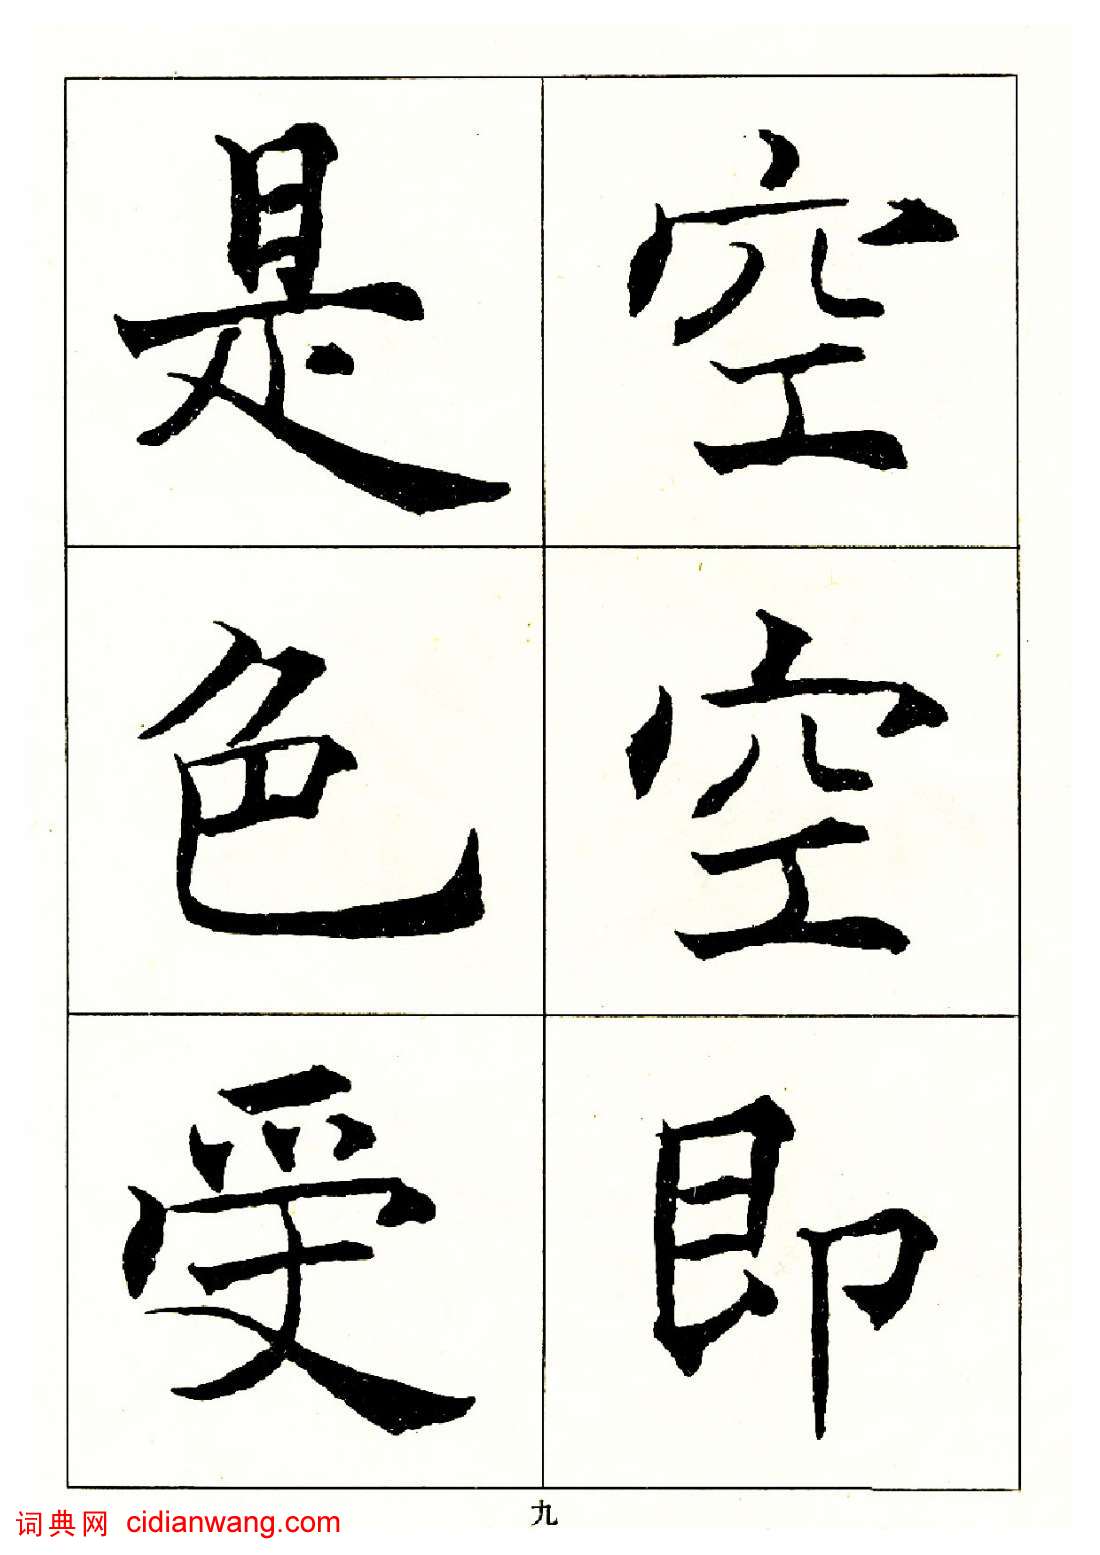 空空即
是色受
九
词典网 cidianwang.com